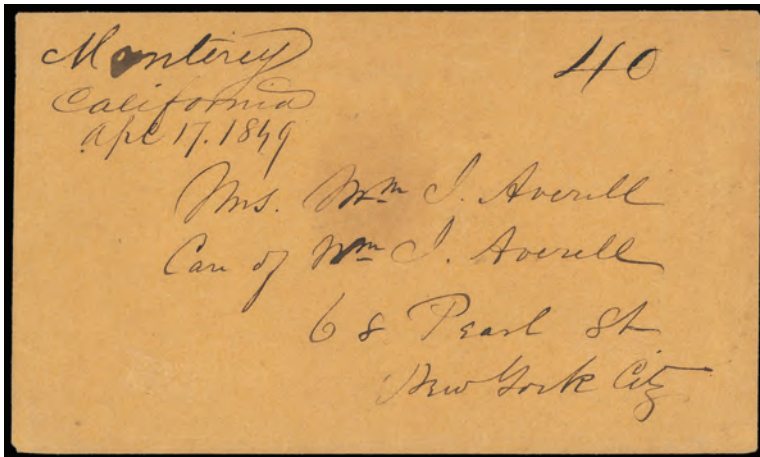 Monterey
California
Apl 17. 1849
40
Mrs. Wm J. Averell
Care of Wm J. Averell
68 Pearl St
New York City